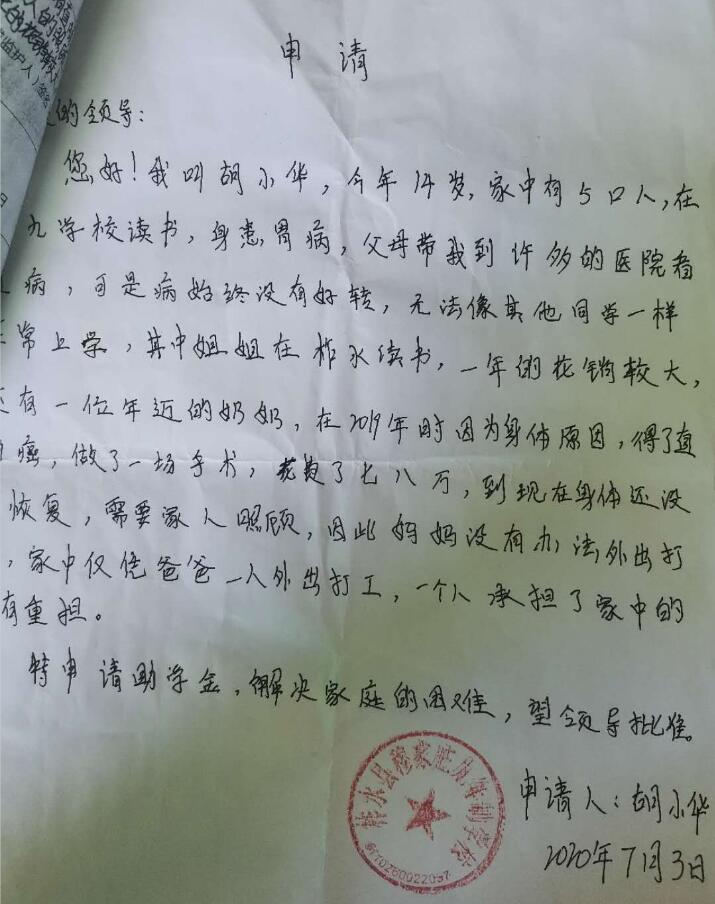 申 请
的领导：
您好！我叫胡小华，今年14岁，家中有5口人，在
九学校读书，身患胃病，父母带我到许多的医院看
病，可是病始终没有好转，无法像其他同学一样
常上学，其中姐姐在柞水读书，一年的花销较大，
有一位年迈的奶奶，在2019年时因为身体原因，得了直
癌，做了一场手术，花费了七八万，到现在身体还没
恢复，需要家人照顾，因此妈妈没有办法外出打
，家中仅凭爸爸一人外出打工，一个人承担了家中的
有重担。
特申请助学金，解决家庭的困难，望领导批准。
柞水县穆家庄九年制学校
6110260022037
申请人：胡小华
2020年7月3日